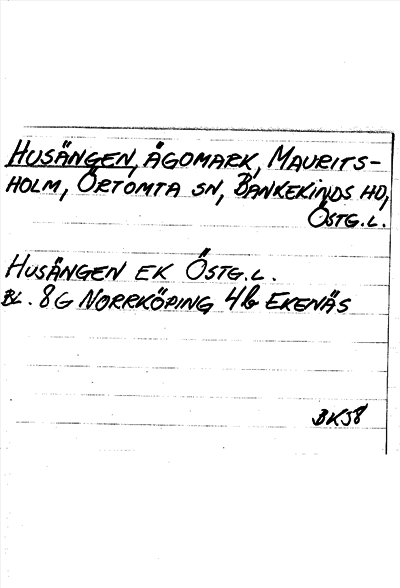 HUSÄNGEN, ÄGOMARK, MAURITS-
HOLM, ÖRTOMTA SN, BANKEKINDS HD,
ÖSTG.L.
HUSÄNGEN EK ÖSTG.L.
BL. 8G NORRKÖPING 4b EKENÄS
BK58